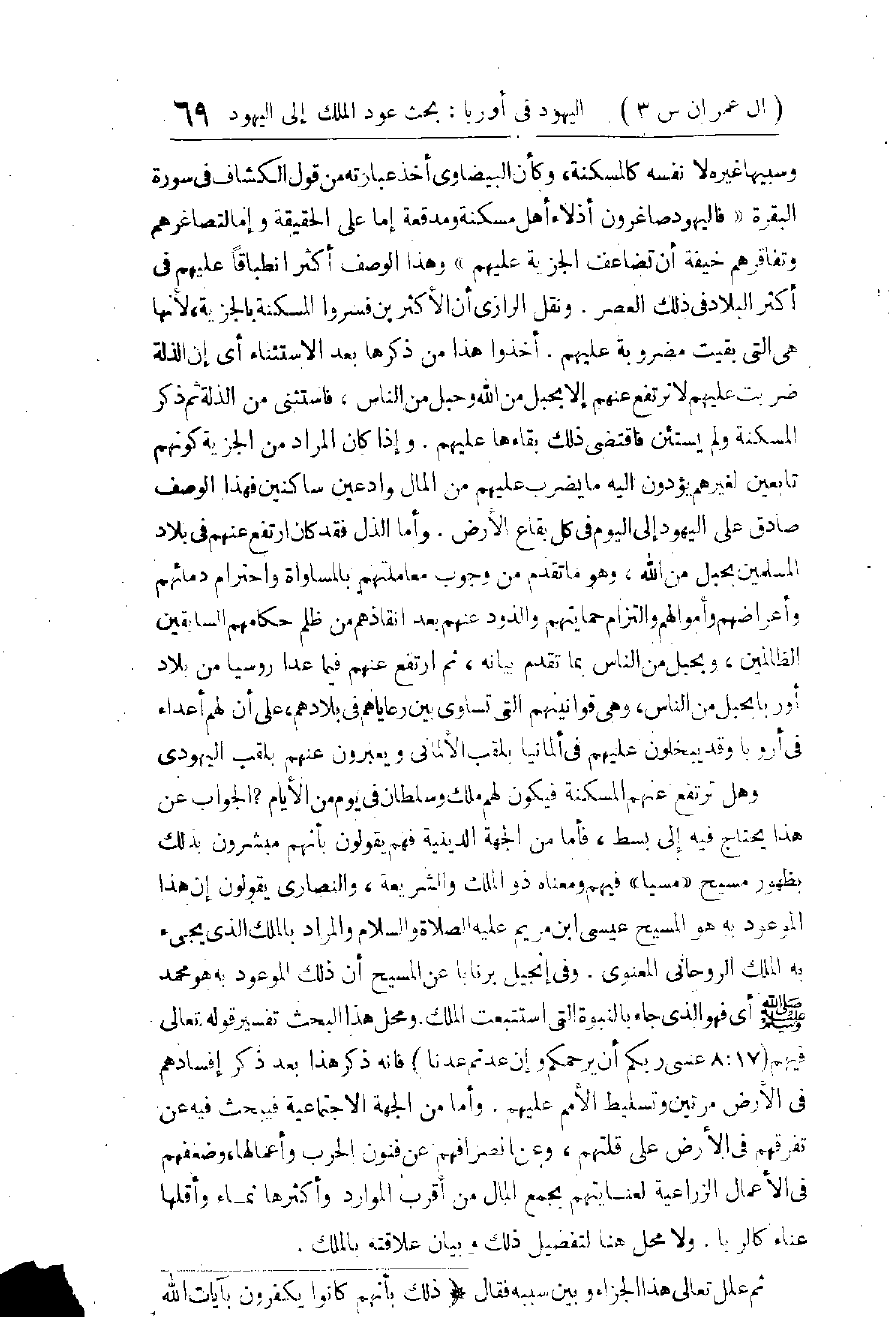 ( ال عمران س ٣ ) اليهود فى أوربا : بحث عود الملك إلى اليهود ٦٩
وسببها غيره لا نفسه كالمسكنة، وكأن البيضاوى أخذ عبارته من قول الكشاف فى سورة
البقرة « فاليهود صاغرون أذلاء أهل مسكنة ومدقعة إما على الحقيقة وإما لتصاغرهم
وتفاقرهم خيفة أن تضاعف الجزية عليهم » وهذا الوصف أكثر انطباقاً عليهم فى
أكثر البلاد فى ذلك العصر . ونقل الرازى أن الأكثرين فسروا المسكنة بالجزية، لأنها
هى التى بقيت مضروبة عليهم . أخذوا هذا من ذكرها بعد الاستثناء أى إن الذلة
ضربت عليهم لا ترتفع عنهم إلا بحبل من الله وحبل من الناس ، فاستثنى من الذلة ثم ذكر
المسكنة ولم يستثن فاقتضى ذلك بقاءها عليهم . وإذا كان المراد من الجزية كونهم
تابعين لغيرهم يؤدون اليه ما يضرب عليهم من المال وادعين ساكنين فهذا الوصف
صادق على اليهود إلى اليوم فى كل بقاع الأرض . وأما الذل فقد كان ارتفع عنهم فى بلاد
المسلمين بحبل من الله ، وهو ما تقدم من وجوب معاملتهم بالمساواة واحترام دمائهم
وأعراضهم وأموالهم والتزام حمايتهم والذود عنهم بعد انقاذهم من ظلم حكامهم السابقين
الظالمين ، وبحبل من الناس بما تقدم بيانه ، ثم ارتفع عنهم فيما عدا روسيا من بلاد
أوربا بحبل من الناس، وهى قوانينهم التى تساوى بين رعاياهم فى بلادهم، على أن لهم أعداء
فى أروبا وقد يبخلون عليهم فى ألمانيا بلقب الألمانى ويعبرون عنهم بلقب اليهودى
وهل ترتفع عنهم المسكنة فيكون لهم ملك وسلطان فى يوم من الأيام ؟ الجواب عن
هذا يحتاج فيه إلى بسط ، فأما من الجهة الدينية فهم يقولون بأنهم مبشرون بذلك
بظهور مسيح «مسيا» فيهم ومعناه ذو الملك والشريعة ، والنصارى يقولون إن هذا
الموعود به هو المسيح عيسى ابن مريم عليه الصلاة والسلام والمراد بالملك الذى يجىء
به الملك الروحانى المعنوى . وفى إنجيل برنابا عن المسيح أن ذلك الموعود به هو محمد
ﷺ أى فهو الذى جاء بالنبوة التى استتبعت الملك. ومحل هذا البحث تفسير قوله تعالى
فيهم (٨:١٧ عسى ربكم أن يرحمكم وإن عدتم عدنا ) فانه ذكر هذا بعد ذكر إفسادهم
فى الأرض مرتين وتسليط الأمم عليهم . وأما من الجهة الاجتماعية فيبحث فيه عن
تفرقهم فى الأرض على قلتهم ، وعن انصرافهم عن فنون الحرب وأعمالها، وضعفهم
فى الأعمال الزراعية لعنايتهم بجمع المال من أقرب الموارد وأكثرها نماء وأقلها
عناء كالربا . ولا محل هنا لتفضيل ذلك وبيان علاقته بالملك .
ثم علل تعالى هذا الجزاء وبين سببه فقال ﴿ ذلك بأنهم كانوا يكفرون بآيات الله